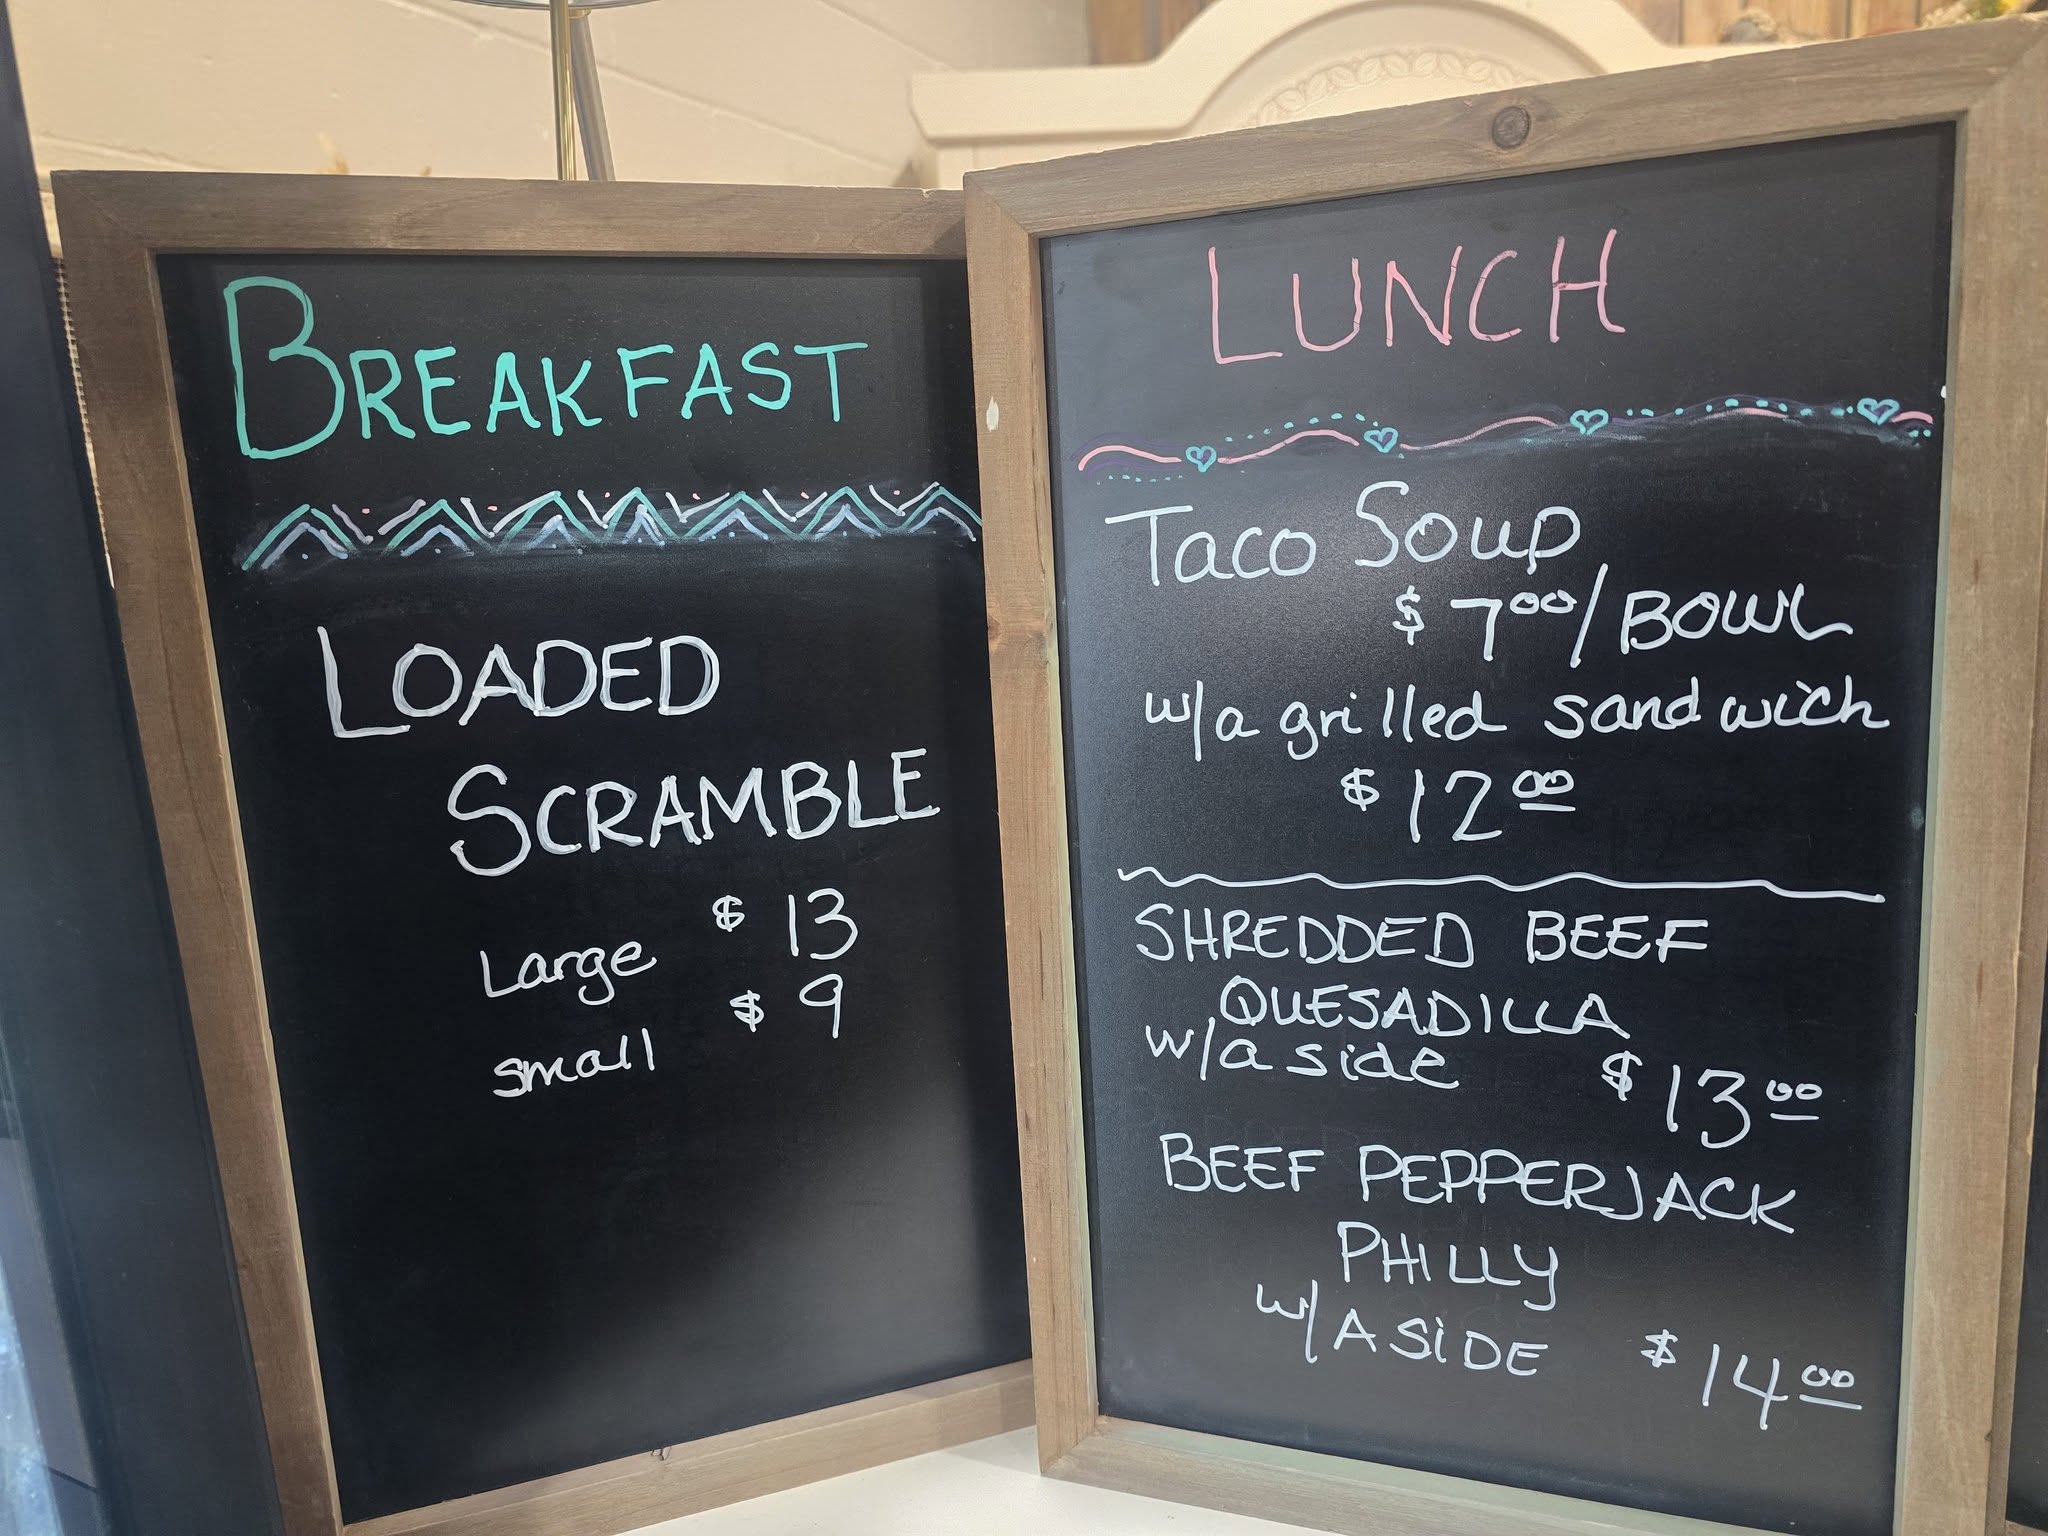 BREAKFAST
LOADED
SCRAMBLE
Large $13
small $9
LUNCH
Taco Soup
$7.00/BOWL
w/a grilled sandwich
$12.00
SHREDDED BEEF
QUESADILLA
w/a side $13.00
BEEF PEPPERJACK
PHILLY
w/A SiDE $14.00